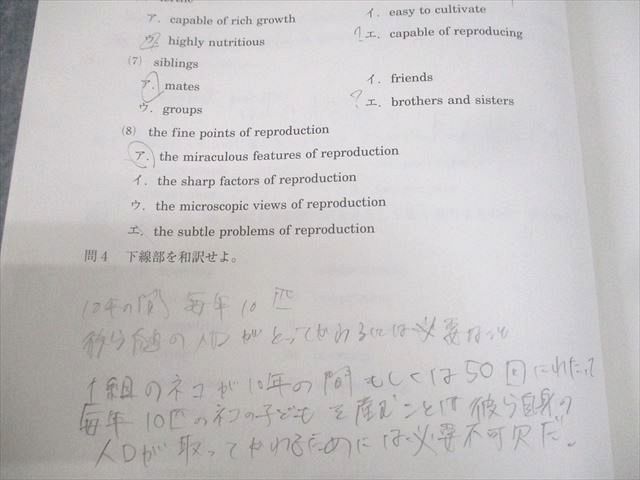 ア. capable of rich growth イ. easy to cultivate
ウ. highly nutritious ?エ. capable of reproducing
(7) siblings
ア. mates イ. friends
ウ. groups ?エ. brothers and sisters
(8) the fine points of reproduction
ア. the miraculous features of reproduction
イ. the sharp factors of reproduction
ウ. the microscopic views of reproduction
エ. the subtle problems of reproduction
問4 下線部を和訳せよ。
10年の間 毎年10匹
彼ら自身の人口がとってかわるには必要
1組のネコが10年の間もしくは50回にわたって
毎年10匹のネコの子どもを産むことは彼ら自身の
人口が取ってかわるためには必要不可欠だ。